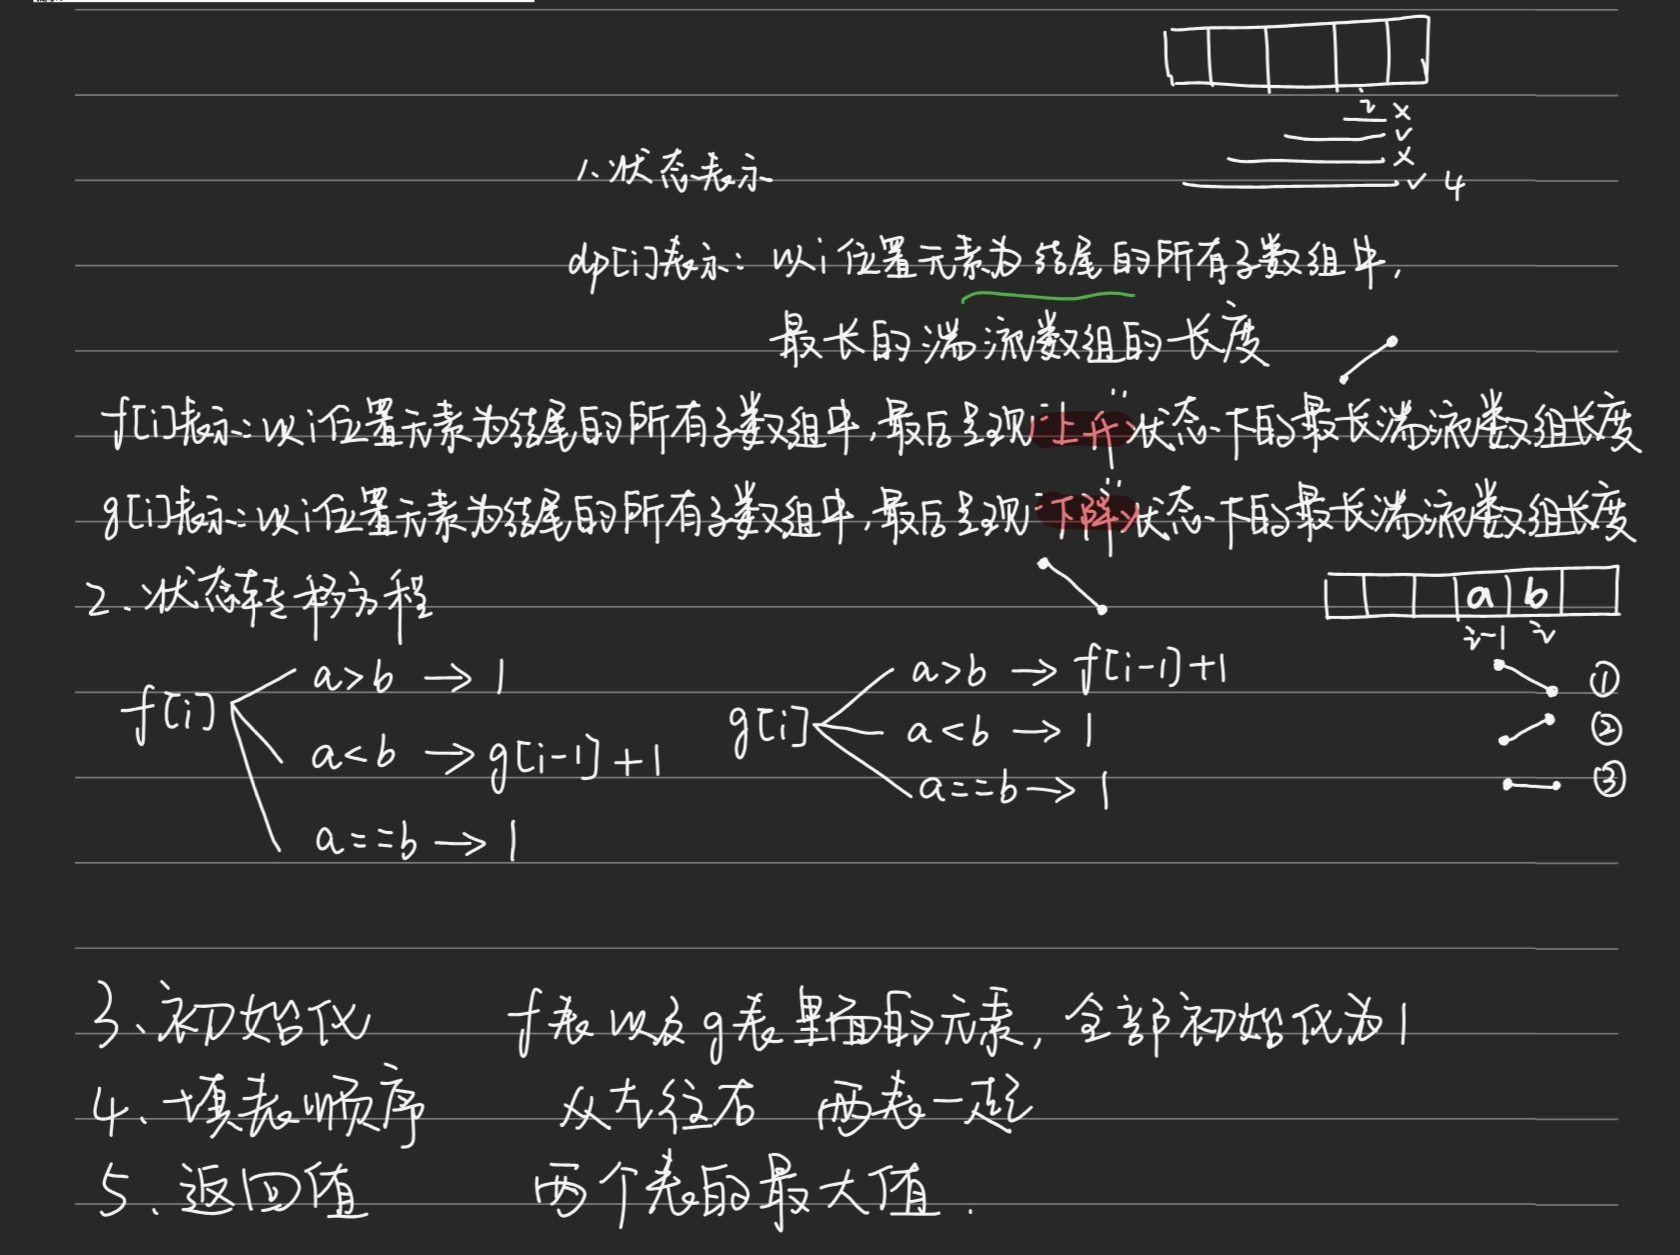 i ×
✓
×
✓ 4
1. 状态表示
dp[i]表示: 以i位置元素为结尾的所有子数组中,
最长的湍流数组的长度
f[i]表示: 以i位置元素为结尾的所有子数组中, 最后呈现"上升"状态下的最长湍流数组长度
g[i]表示: 以i位置元素为结尾的所有子数组中, 最后呈现"下降"状态下的最长湍流数组长度
2. 状态转移方程
a b
i-1 i
f[i]
a>b → 1
a<b → g[i-1]+1
a==b → 1
g[i]
a>b → f[i-1]+1
a<b → 1
a==b → 1
①
②
③
3、初始化 f表以及g表里面的元素, 全部初始化为1
4、填表顺序 从左往右 两表一起
5、返回值 两个表的最大值.